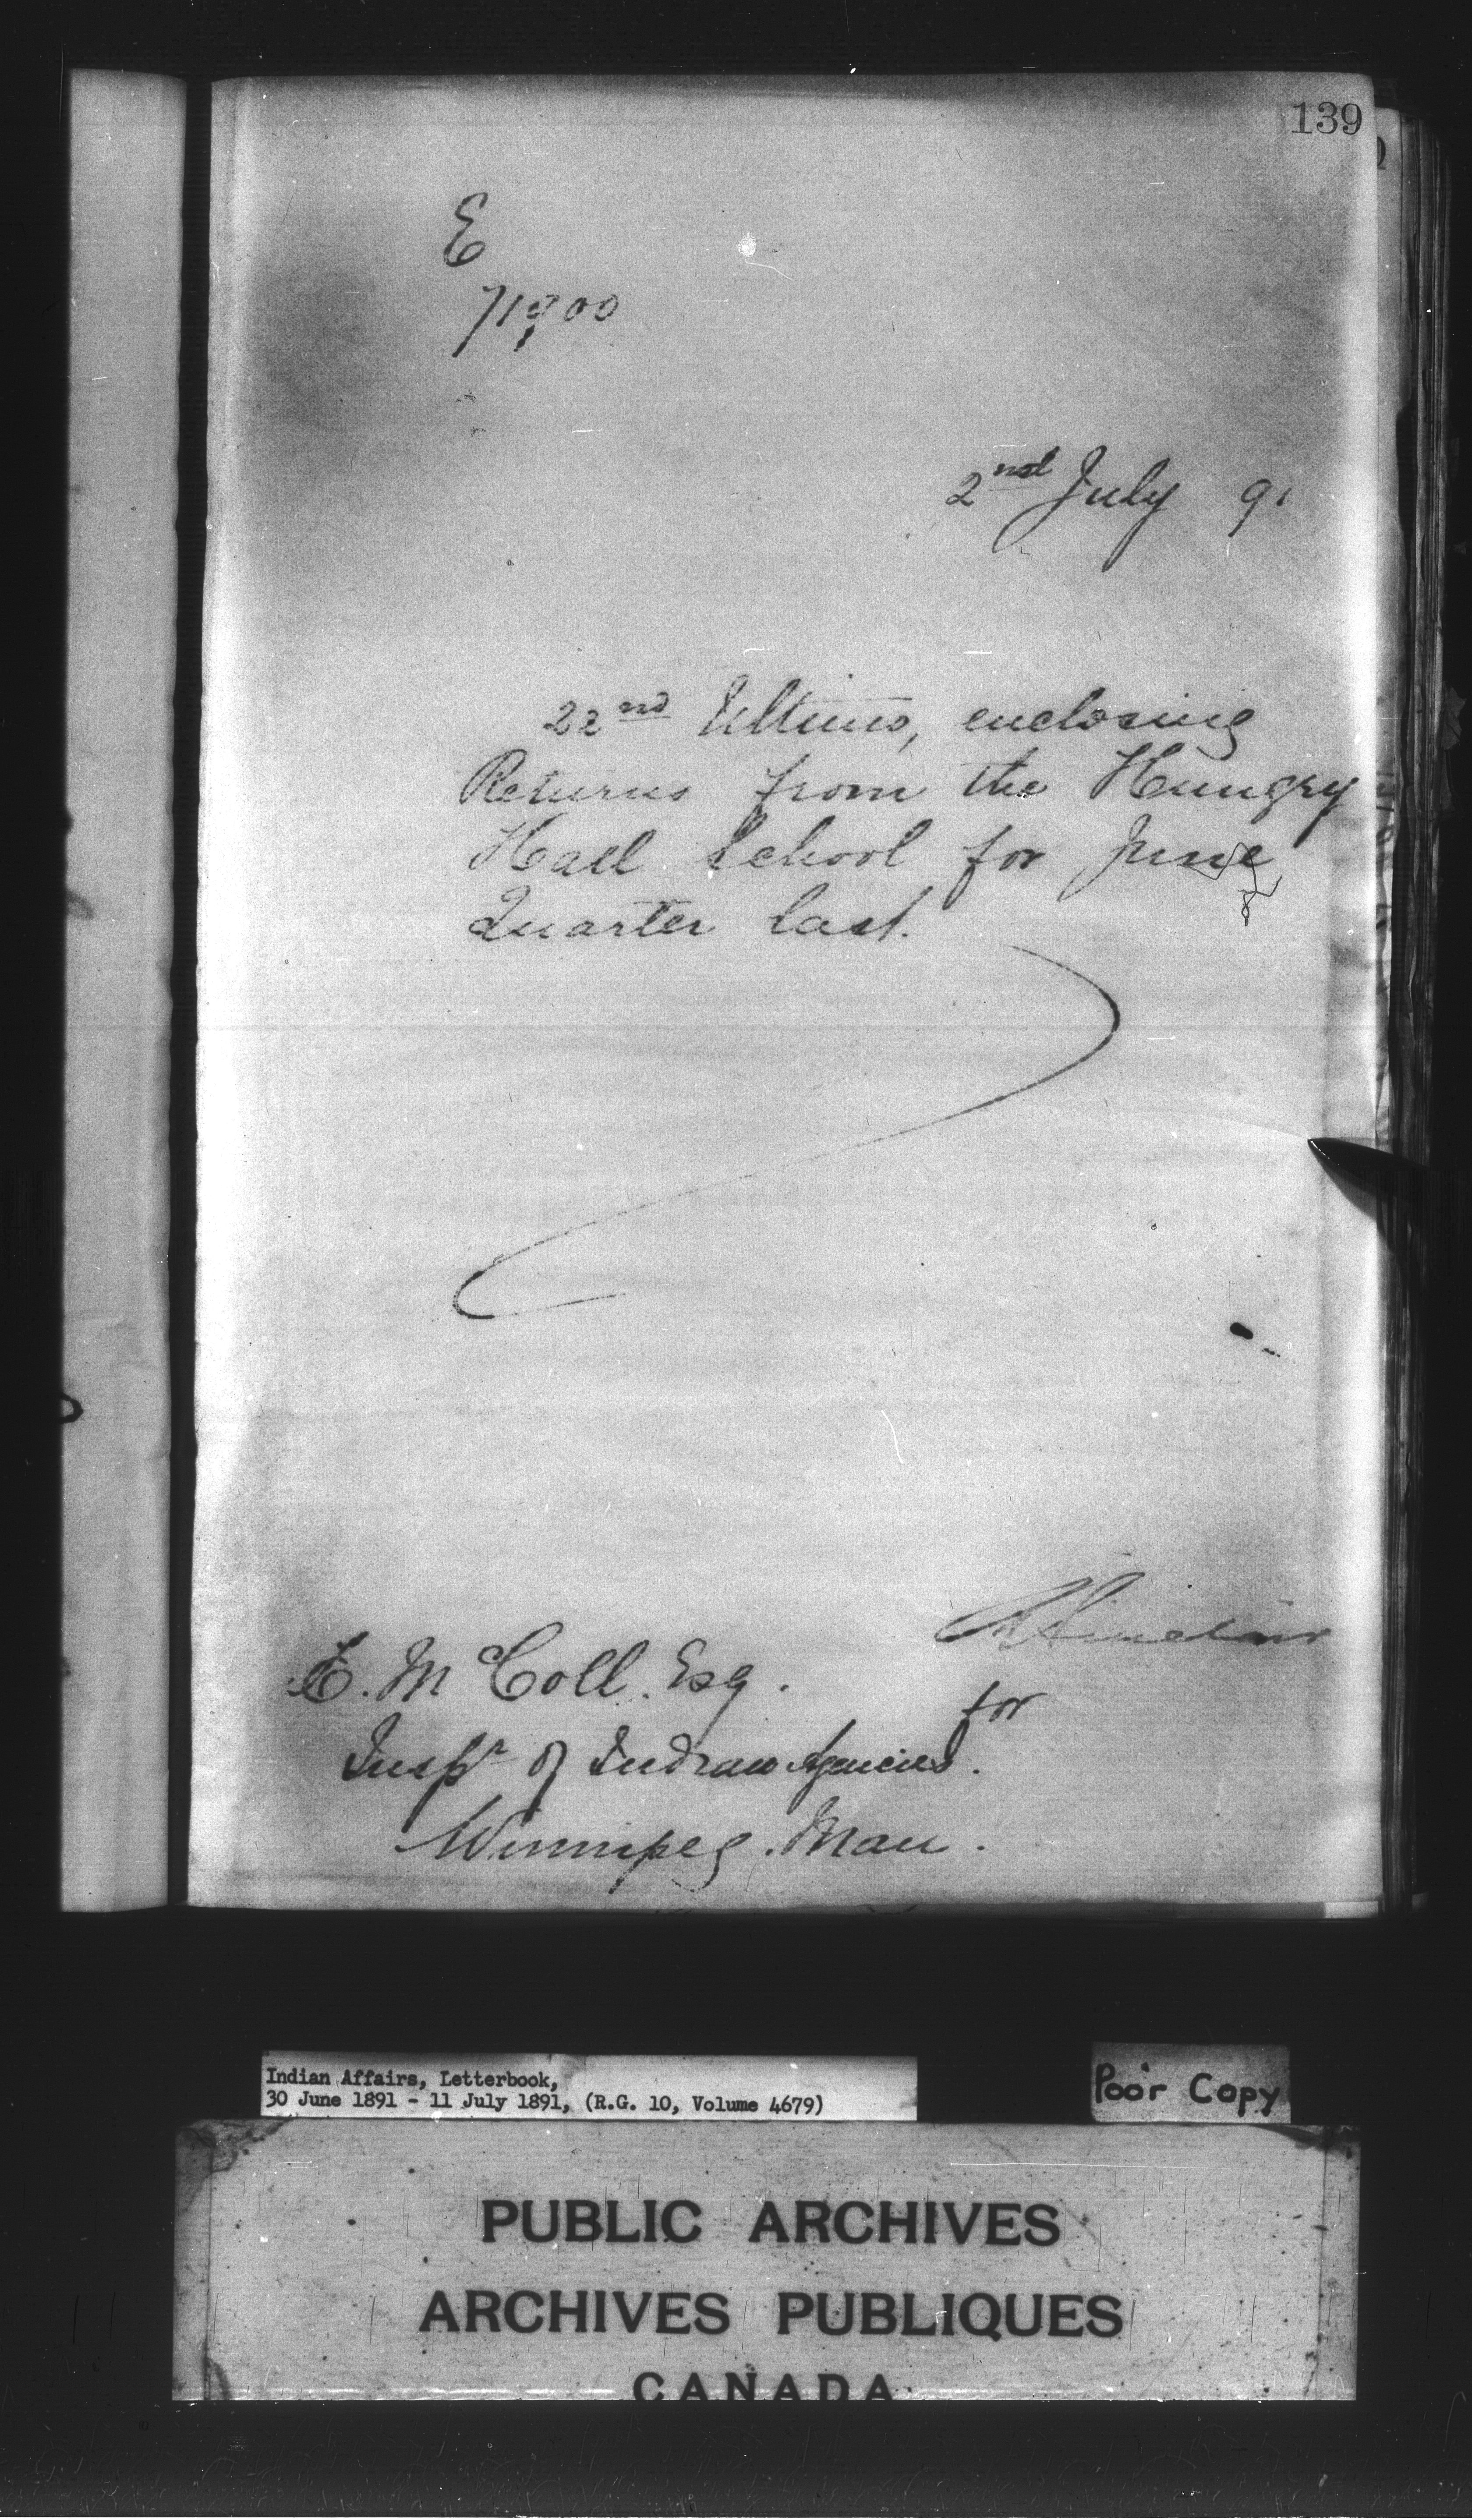 139
E
71900
2nd July 91
22nd Ultimo, enclosing
Returns from the Hungry
Hall School for June
Quarter last.
R Sinclair
for
E. McColl. Esq.
Inspr of Indian Agencies.
Winnipeg. Man.
Indian Affairs, Letterbook,
30 June 1891 - 11 July 1891, (R.G. 10, Volume 4679)
Poor Copy
PUBLIC ARCHIVES
ARCHIVES PUBLIQUES
CANADA